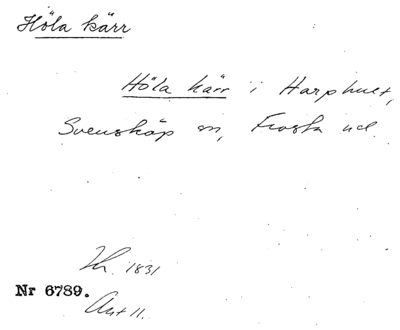 Höla kärr
Höla kärr i Harphult,
Svensköp sn, Frosta hd.
1831
Nr 6789.
Akt 11.